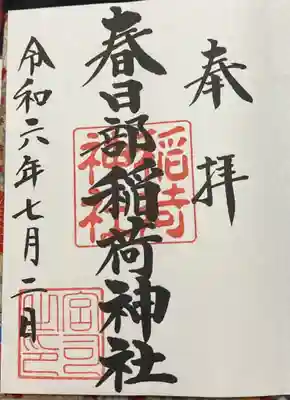 奉拝
春日部稲荷神社
令和六年七月二日
稲荷神社
宮司之印